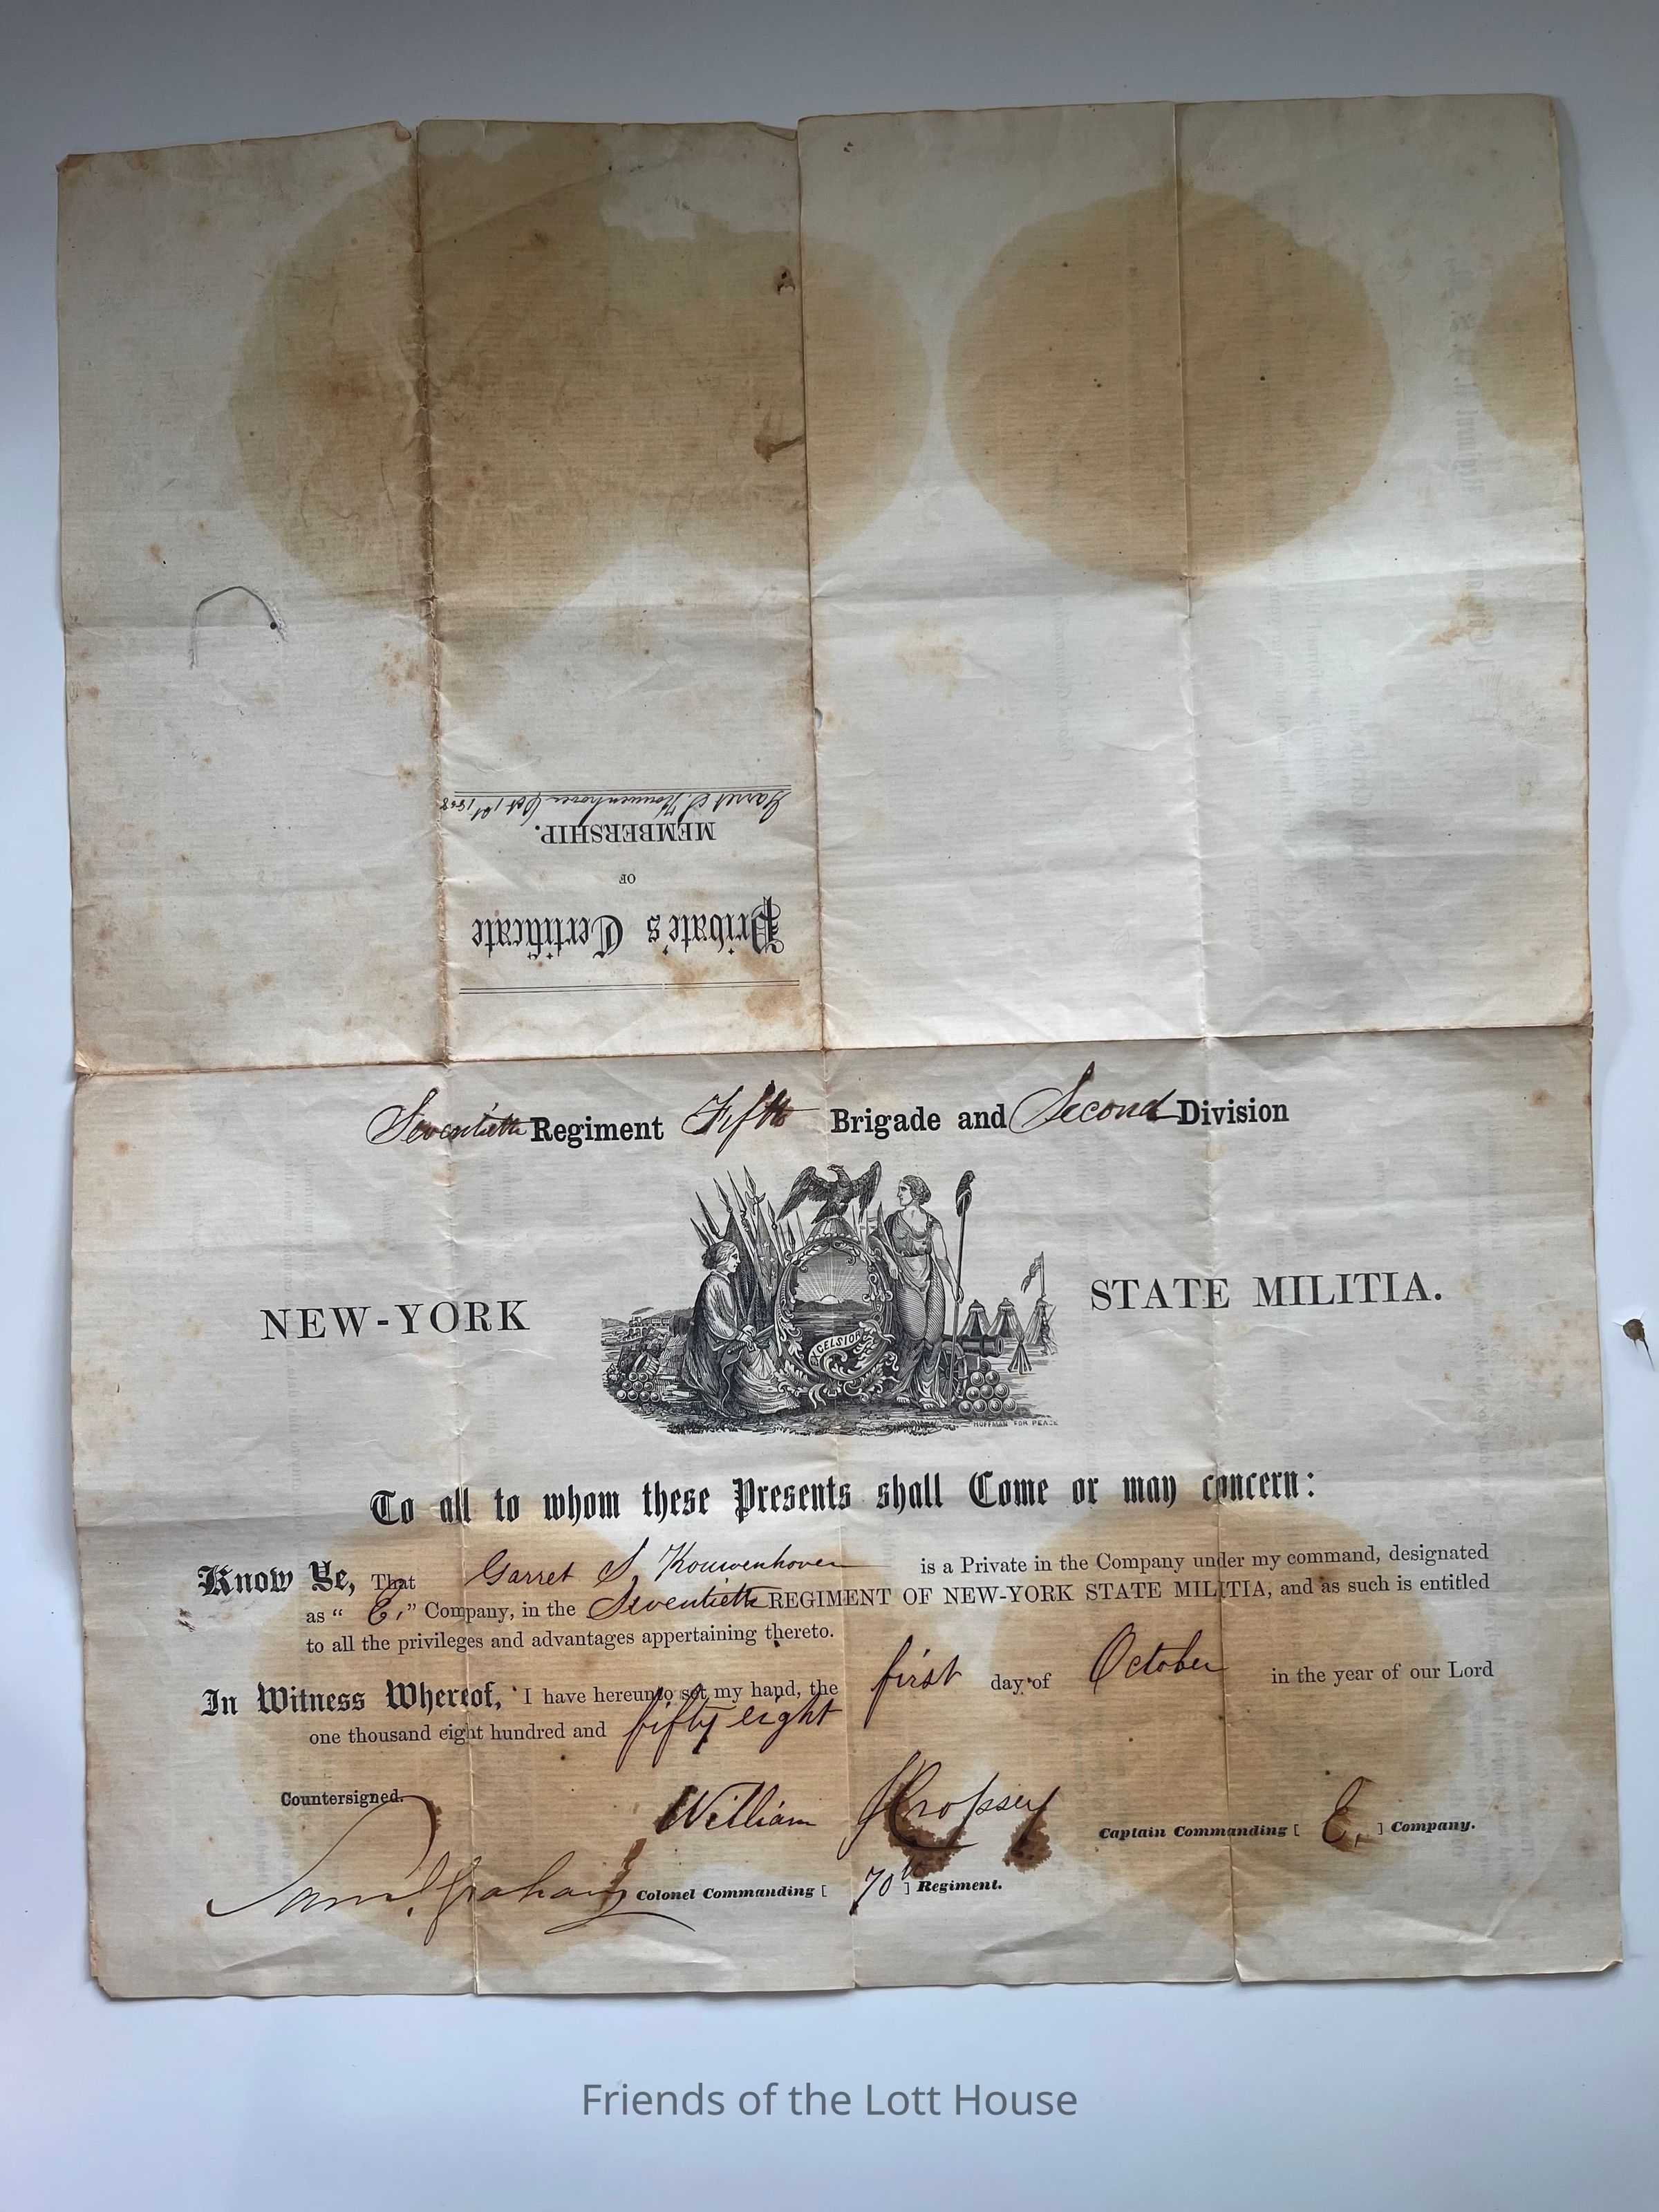 Private's Certificate
OF
MEMBERSHIP.
Garret S. Kouwenhoven Oct 1st 1858
Seventieth Regiment Fifth Brigade and Second Division
NEW-YORK STATE MILITIA.
EXCELSIOR
HOFFMAN FOR PEASE
To all to whom these Presents shall Come or may concern:
Know Ye, That Garret S. Kouwenhoven is a Private in the Company under my command, designated
as "E," Company, in the Seventieth REGIMENT OF NEW-YORK STATE MILITIA, and as such is entitled
to all the privileges and advantages appertaining thereto.
In Witness Whereof, I have hereunto set my hand, the first day of October in the year of our Lord
one thousand eight hundred and fifty eight
Countersigned.
William Cropsey Captain Commanding [ E. ] Company.
Saml. Graham Colonel Commanding [ 70th ] Regiment.
Friends of the Lott House